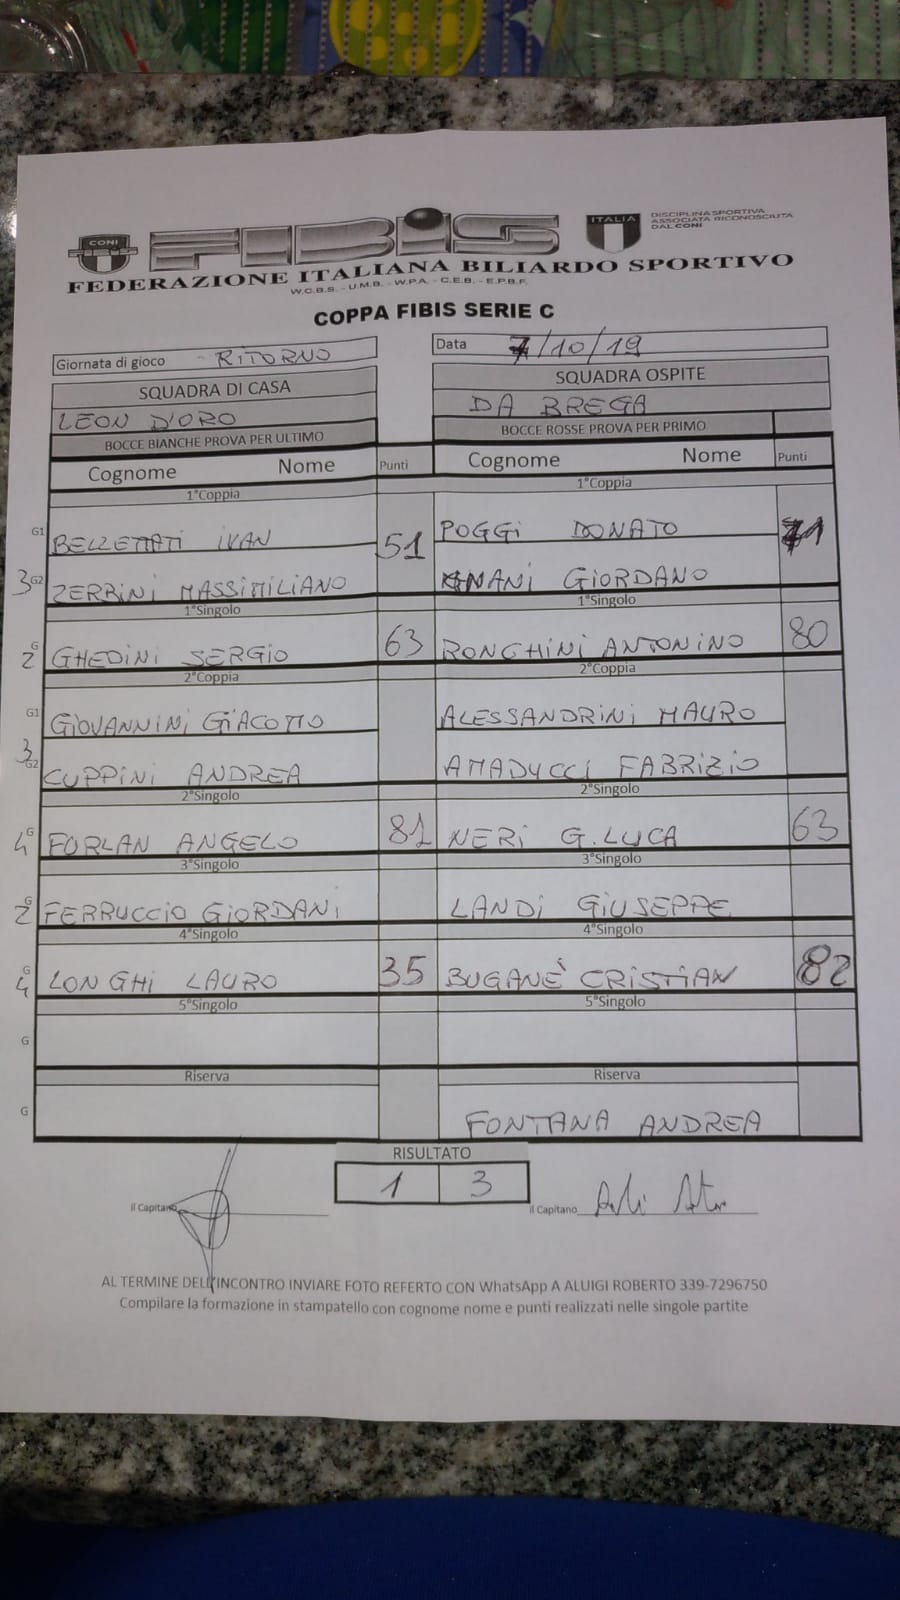 CONI
FIBIS
ITALIA
DISCIPLINA SPORTIVA
ASSOCIATA RICONOSCIUTA
DAL CONI
FEDERAZIONE ITALIANA BILIARDO SPORTIVO
W.C.B.S. - U.M.B. - W.P.A. - C.E.B. - E.P.B.F.
COPPA FIBIS SERIE C
Giornata di gioco - RITORNO
Data 7/10/19
SQUADRA DI CASA SQUADRA OSPITE
LEON D'ORO DA BREGA
BOCCE BIANCHE PROVA PER ULTIMO BOCCE ROSSE PROVA PER PRIMO
Cognome Nome Punti Cognome Nome Punti
1°Coppia 1°Coppia
G1 BELLETTATI IVAN 51 POGGI DONATO 71
3 G2 ZERBINI MASSIMILIANO NANI GIORDANO
1°Singolo 1°Singolo
G 2 GHEDINI SERGIO 63 RONGHINI ANTONINO 80
2°Coppia 2°Coppia
G1 GIOVANNINI GIACOMO ALESSANDRINI MAURO
3 G2 CUPPINI ANDREA AMADUCCI FABRIZIO
2°Singolo 2°Singolo
G 4 FORLAN ANGELO 81 NERI G.LUCA 63
3°Singolo 3°Singolo
G 2 FERRUCCIO GIORDANI LANDI GIUSEPPE
4°Singolo 4°Singolo
G 4 LONGHI LAURO 35 BUGANÈ CRISTIAN 82
5°Singolo 5°Singolo
G
Riserva Riserva
G FONTANA ANDREA
RISULTATO
1 3
Il Capitano Il Capitano
AL TERMINE DELL'INCONTRO INVIARE FOTO REFERTO CON WhatsApp A ALUIGI ROBERTO 339-7296750
Compilare la formazione in stampatello con cognome nome e punti realizzati nelle singole partite